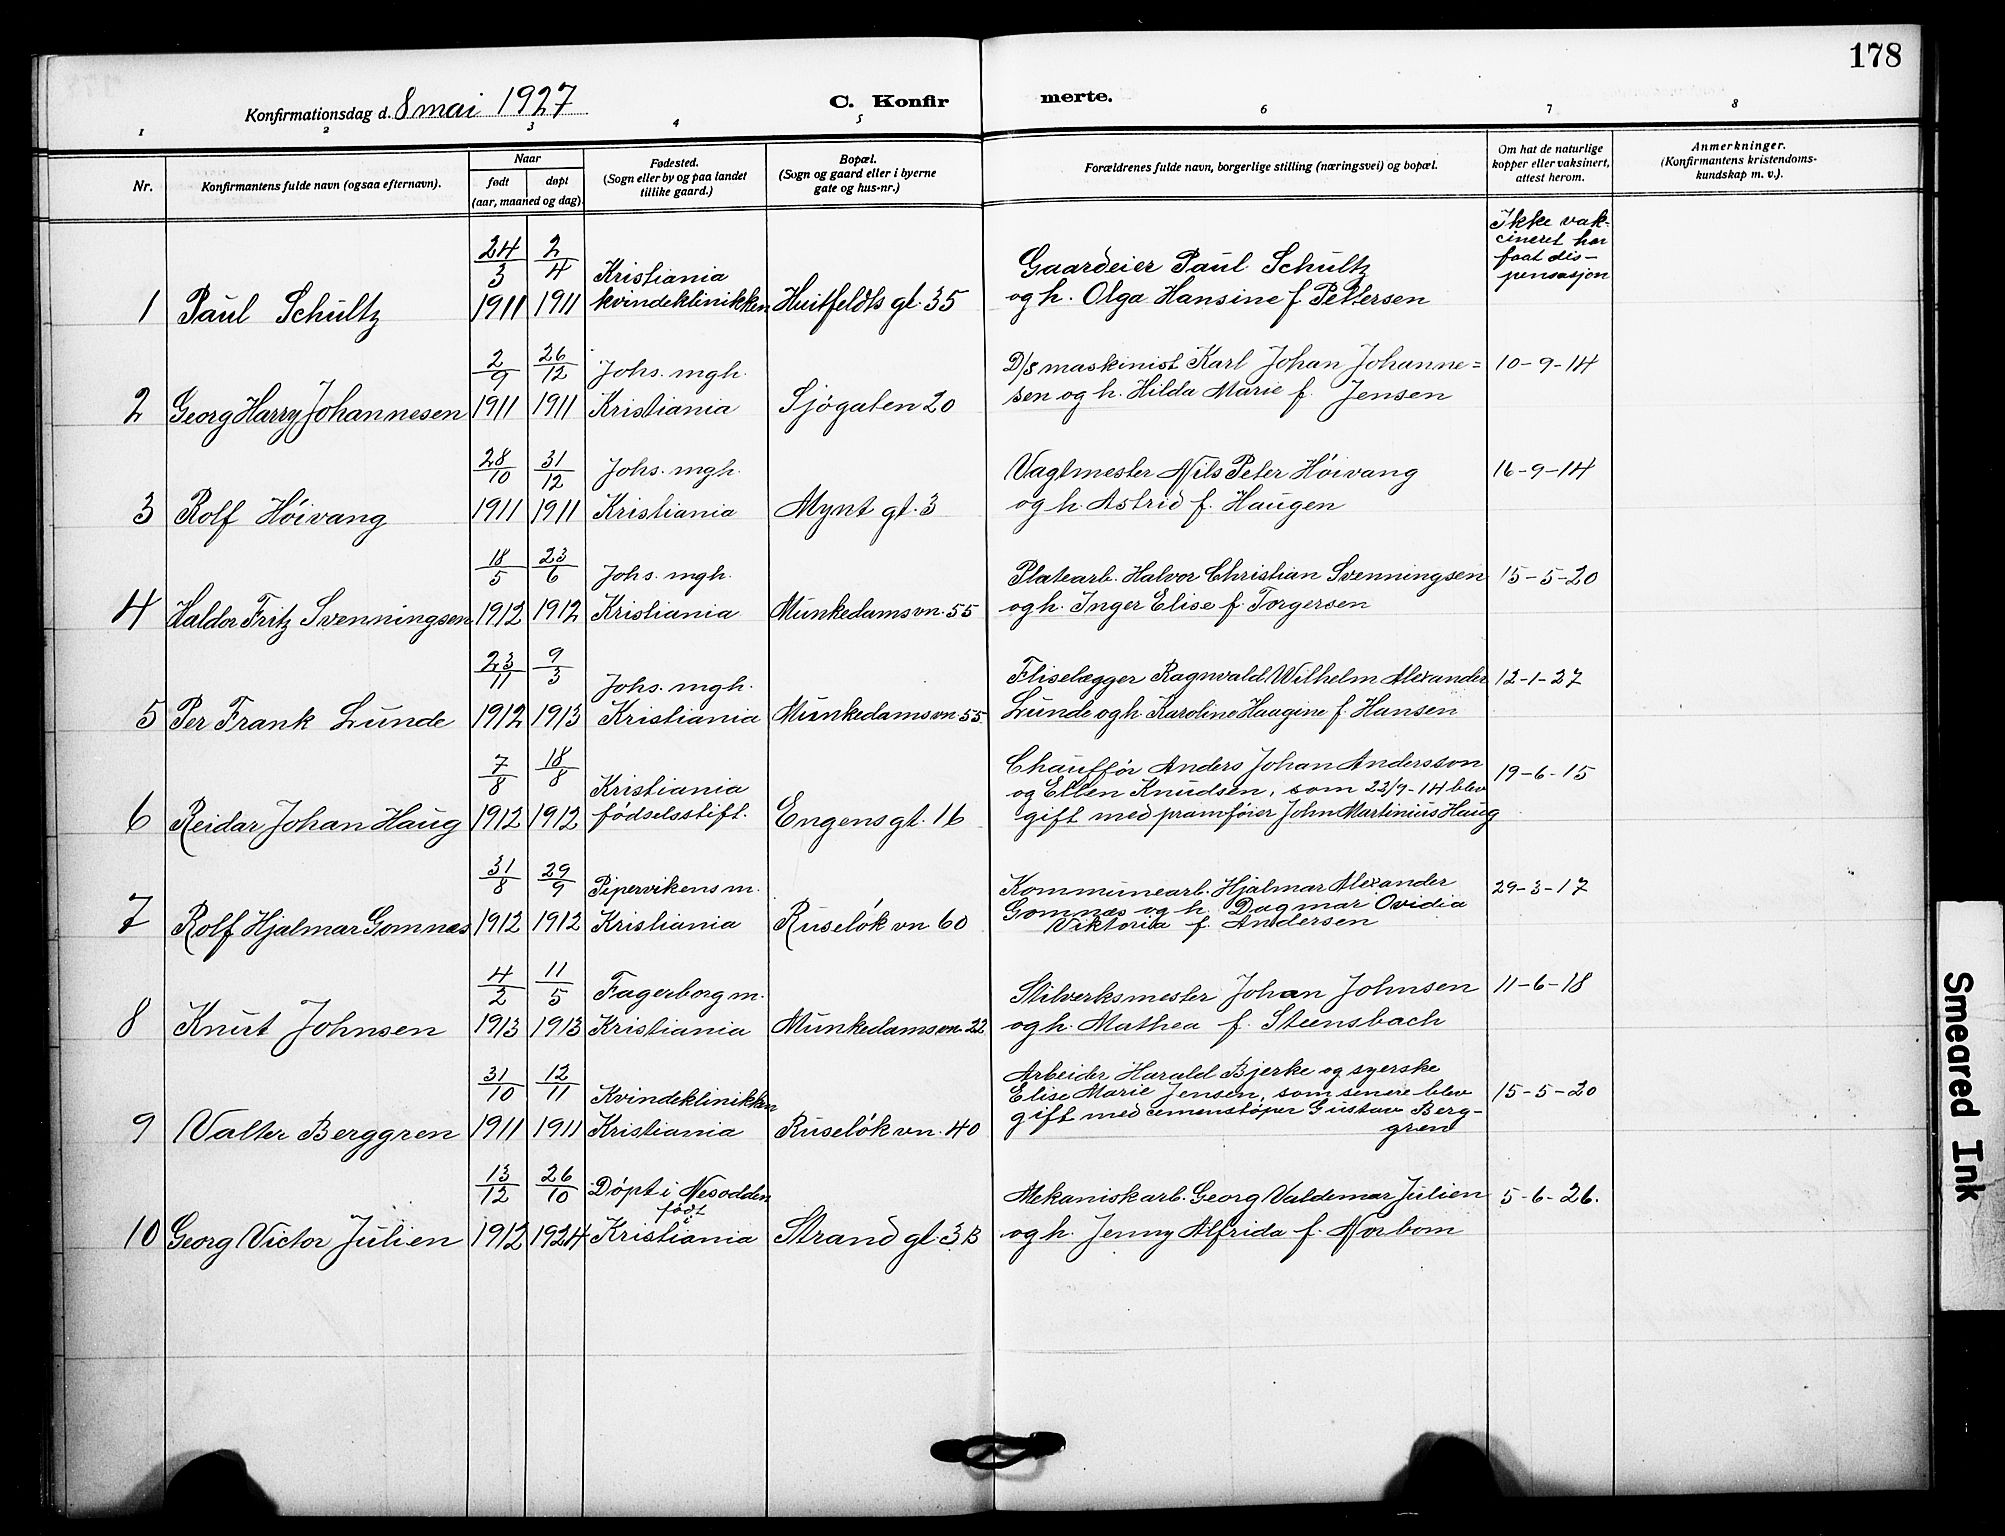 178
Konfirmationsdag d. 8 mai 1927
C. Konfir merte.
1 2 3 4 5 6 7 8
Nr.
Konfirmantens fulde navn (ogsaa efternavn).
Naar
født døpt
(aar, maaned og dag).
Fødested.
(Sogn eller by og paa landet
tillike gaard.)
Bopæl.
(Sogn og gaard eller i byerne
gate og hus-nr.)
Forældrenes fulde navn, borgerlige stilling (næringsvei) og bopæl.
Om hat de naturlige
kopper eller vaksinert,
attest herom.
Anmerkninger.
(Konfirmantens kristendoms-
kundskap m. v.).
1 Paul Schultz
24/3 1911
2/4 1911
Kristiania
kvindeklinikken
Huitfeldts gt. 35
Gaardeier Paul Schultz
og h. Olga Hansine f. Pettersen
Ikke vak-
cineret har
faat dis-
pensasjon
2 Georg Harry Johannesen
2/9 1911
26/12 1911
Johs. mgh.
Kristiania
Sjøgaten 20
D/s maskinist Karl Johan Johanne=
sen og h. Hilda Marie f. Jensen
10-9-14
3 Rolf Høivang
28/10 1911
31/12 1911
Johs. mgh.
Kristiania
Mynt gt. 3
Vagtmester Nils Peter Høivang
og h. Astrid f. Haugen
16-9-14
4 Haldor Fritz Svenningsen
18/5 1912
23/6 1912
Johs. mgh.
Kristiania
Munkedamsvn. 55
Platearb. Halvor Christian Svenningsen
og h. Inger Elise f. Torgersen
15-5-20
5 Per Frank Lunde
23/11 1912
9/3 1913
Johs. mgh.
Kristiania
Munkedamsvn 55
Fliselægger Ragnvald Wilhelm Alexander
Lunde og h. Karoline Haagine f. Hansen
12-1-27
6 Reidar Johan Haug
7/8 1912
18/8 1912
Kristiania
fødselsstift.
Engens gt. 16
Chauffør Anders Johan Andersson
og Ellen Knudsen, som 23/9-14 blev
gift med pramføier John Martinius Haug
19-6-15
7 Rolf Hjalmar Gomnæs
31/8 1912
29/9 1912
Pipervikens m.
Kristiania
Ruseløk vn 60
Kommunearb. Hjalmar Alexander
Gomnæs og h. Dagmar Ovidia
Viktoria f. Andersen
29-3-17
8 Knut Johnsen
4/2 1913
11/5 1913
Fagerborg m.
Kristiania
Munkedamsvn. 22
Stilverksmester Johan Johnsen
og h. Mathea f. Steensbach
11-6-18
9 Valter Berggren
31/10 1911
12/11 1911
Kvindeklinikken
Kristiania
Ruseløk vn. 40
Arbeider Harald Bjerke og syerske
Elise Marie Jensen, som senere blev
gift med cementstøper Gustav Berg-
gren
15-5-20
10 Georg Victor Julien
13/12 1912
26/10 1924
Døpt i Nesodden
født i
Kristiania
Strand gt. 3B
Mekanisk arb. Georg Valdemar Julien
og h. Jenny Alfrida f. Norbom
5-6-26.
Smeared Ink